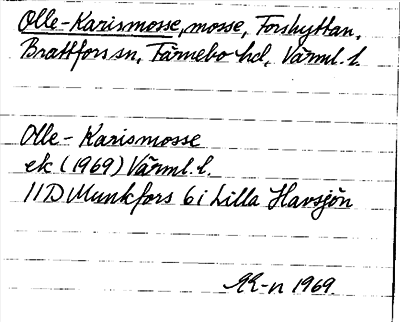 Olle-Karismosse, mosse, Forshyttan,
Brattfors sn, Färnebo hd, Värml. l.
Olle-Karismosse
ek (1969) Värml. l.
11D Munkfors 6i Lilla Havsjön
RR-n 1969